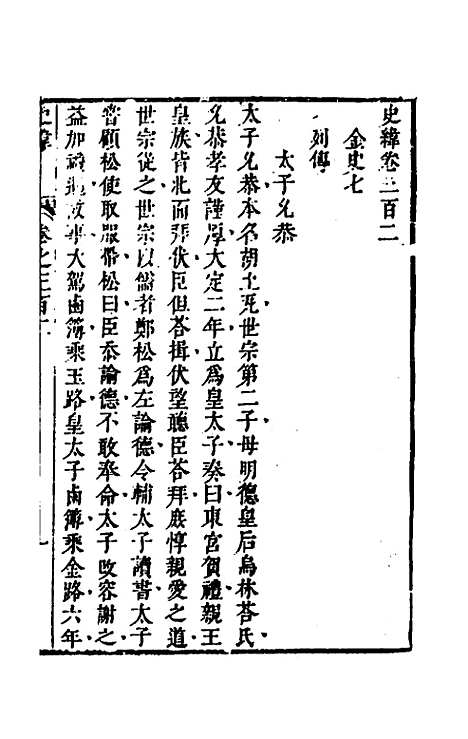 史緯卷三百二
金史七
列傳
太子允恭
太子允恭本名胡土瓦世宗第二子母明德皇后烏林荅氏
允恭孝友謹厚大定二年立爲皇太子奏曰東宮賀禮親王
皇族皆北面拜伏臣但荅揖伏望聽臣荅拜庶惇親愛之道
世宗從之世宗以儒者鄭松爲左諭德令輔太子讀書太子
嘗顧松使取服帶松曰臣忝諭德不敢奉命太子改容謝之
益加禮遇故事大駕鹵簿乘玉路皇太子鹵簿乘金路六年
史緯 卷之三百二